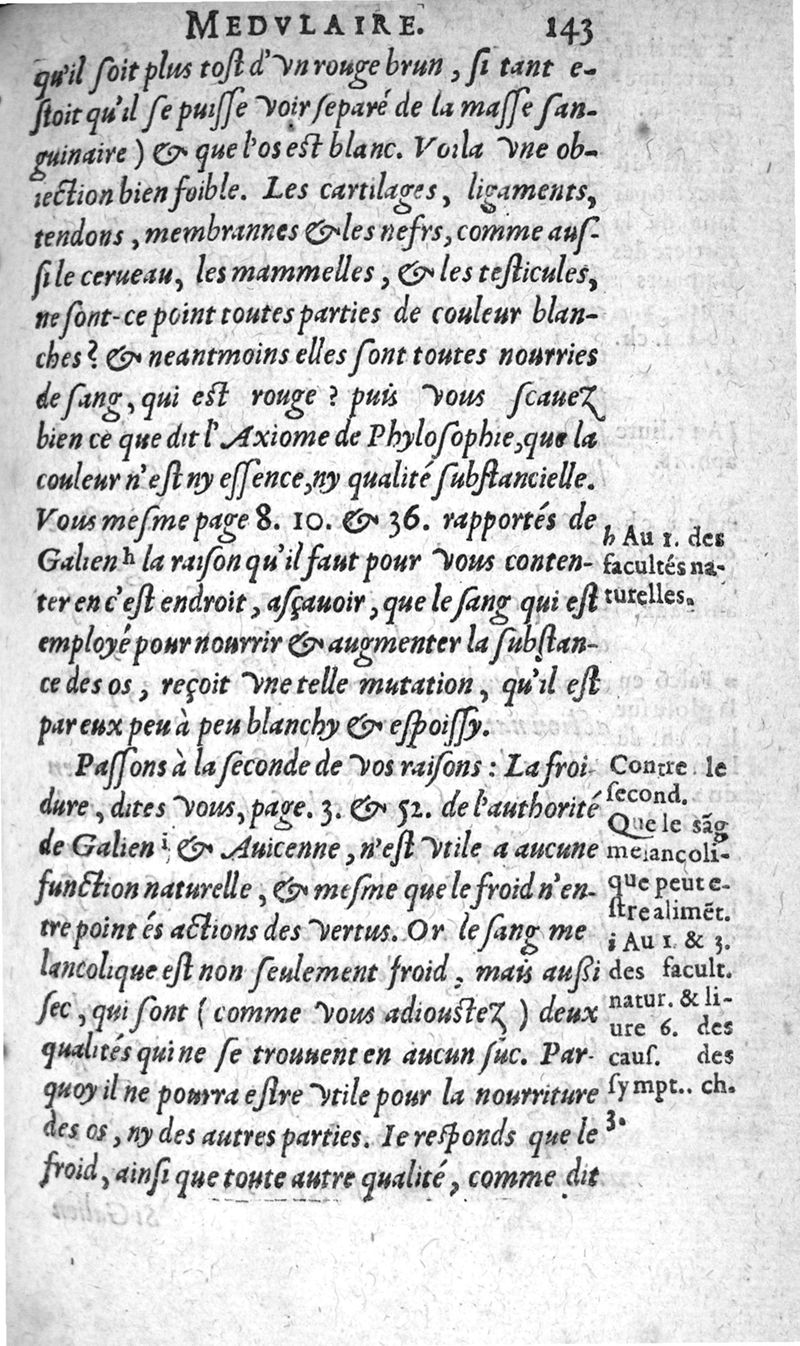 MEDVLAIRE. 143
qu'il ſoit plus toſt d'vn rouge brun, ſi tant e-
ſtoit qu'il ſe puiſſe voir ſeparé de la maſſe ſan-
guinaire) & que l'os est blanc. Voila vne ob-
iection bien foible. Les cartilages, ligaments,
tendons, membrannes & les nefrs, comme auſ-
ſi le cerueau, les mammelles, & les teſticules,
ne ſont-ce point toutes parties de couleur blan-
ches? & neantmoins elles ſont toutes nourries
de ſang, qui est rouge? puis vous ſcauez
bien ce que dit l'Axiome de Phyloſophie, que la
couleur n'eſt ny eſſence, ny qualité ſubſtancielle.
Vous meſme page 8. 10. & 36. rapportés de
Galien h la raiſon qu'il faut pour vous conten-
ter en c'eſt endroit, aſçauoir, que le ſang qui eſt
employé pour nourrir & augmenter la ſubſtan-
ce des os, reçoit vne telle mutation, qu'il eſt
par eux peu à peu blanchy & eſpoiſſy.
h Au 1. des
facultés na-
turelles.
Paſſons à la ſeconde de vos raiſons: La froi-
dure, dites vous, page. 3. & 52. de l'authorité
de Galien i, & Auicenne, n'eſt vtile a aucune
function naturelle, & meſme que le froid n'en-
tre point és actions des vertus. Or le ſang me
lancolique eſt non ſeulement froid, mais außi
ſec, qui ſont (comme vous adiouſtez) deux
qualités qui ne ſe trouuent en aucun ſuc. Par-
quoy il ne pourra eſtre vtile pour la nourriture
des os, ny des autres parties. Ie reſponds que le
froid, ainſi que toute autre qualité, comme dit
Contre le
ſecond.
Que le sãg
melançoli-
que peut e-
ſtre alimẽt.
i Au 1. & 3.
des facult.
natur. & li-
ure 6. des
cauſ. des
ſympt.. ch.
3.